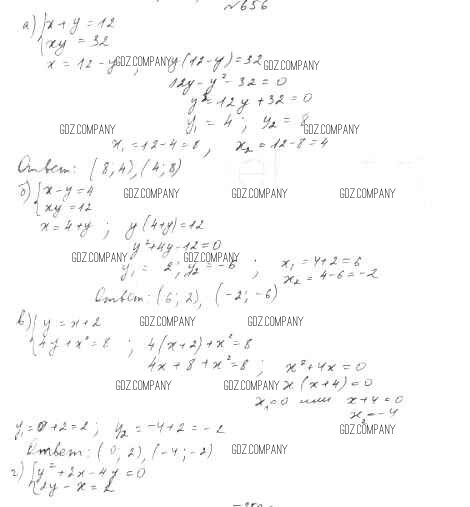 №656
а) {x + y = 12
{xy = 32
x = 12 - y GDZ.COMPANY ; y(12-y) = 32 GDZ.COMPANY
12y - y² - 32 = 0
y² = 12y + 32 = 0
GDZ.COMPANY y₁ = 4 ; y₂ = 8 GDZ.COMPANY
x₁ = 12 - 4 = 8 , x₂ = 12 - 8 = 4
Ответ: (8; 4), (4; 8)
б) {x - y = 4 GDZ.COMPANY GDZ.COMPANY GDZ.COMPANY
{xy = 12
x = 4 + y ; y(4+y) = 12
y² + 4y - 12 = 0
GDZ.COMPANY GDZ.COMPANY
y₁ = 2 ; y₂ = -6 ; x₁ = 4 + 2 = 6
x₂ = 4 - 6 = -2
Ответ: (6; 2), (-2; -6)
в) {y = x + 2 GDZ.COMPANY GDZ.COMPANY
{4y + x² = 8 ; 4(x+2) + x² = 8
4x + 8 + x² = 8 ; x² + 4x = 0
GDZ.COMPANY GDZ.COMPANY x(x+4) = 0
x₁ = 0 или x + 4 = 0
x₂ = -4
y₁ = 0 + 2 = 2 ; y₂ = -4 + 2 = -2 GDZ.COMPANY
Ответ: (0; 2), (-4; -2) GDZ.COMPANY
г) {y² + 2x - 4y = 0
{2y - x = 2